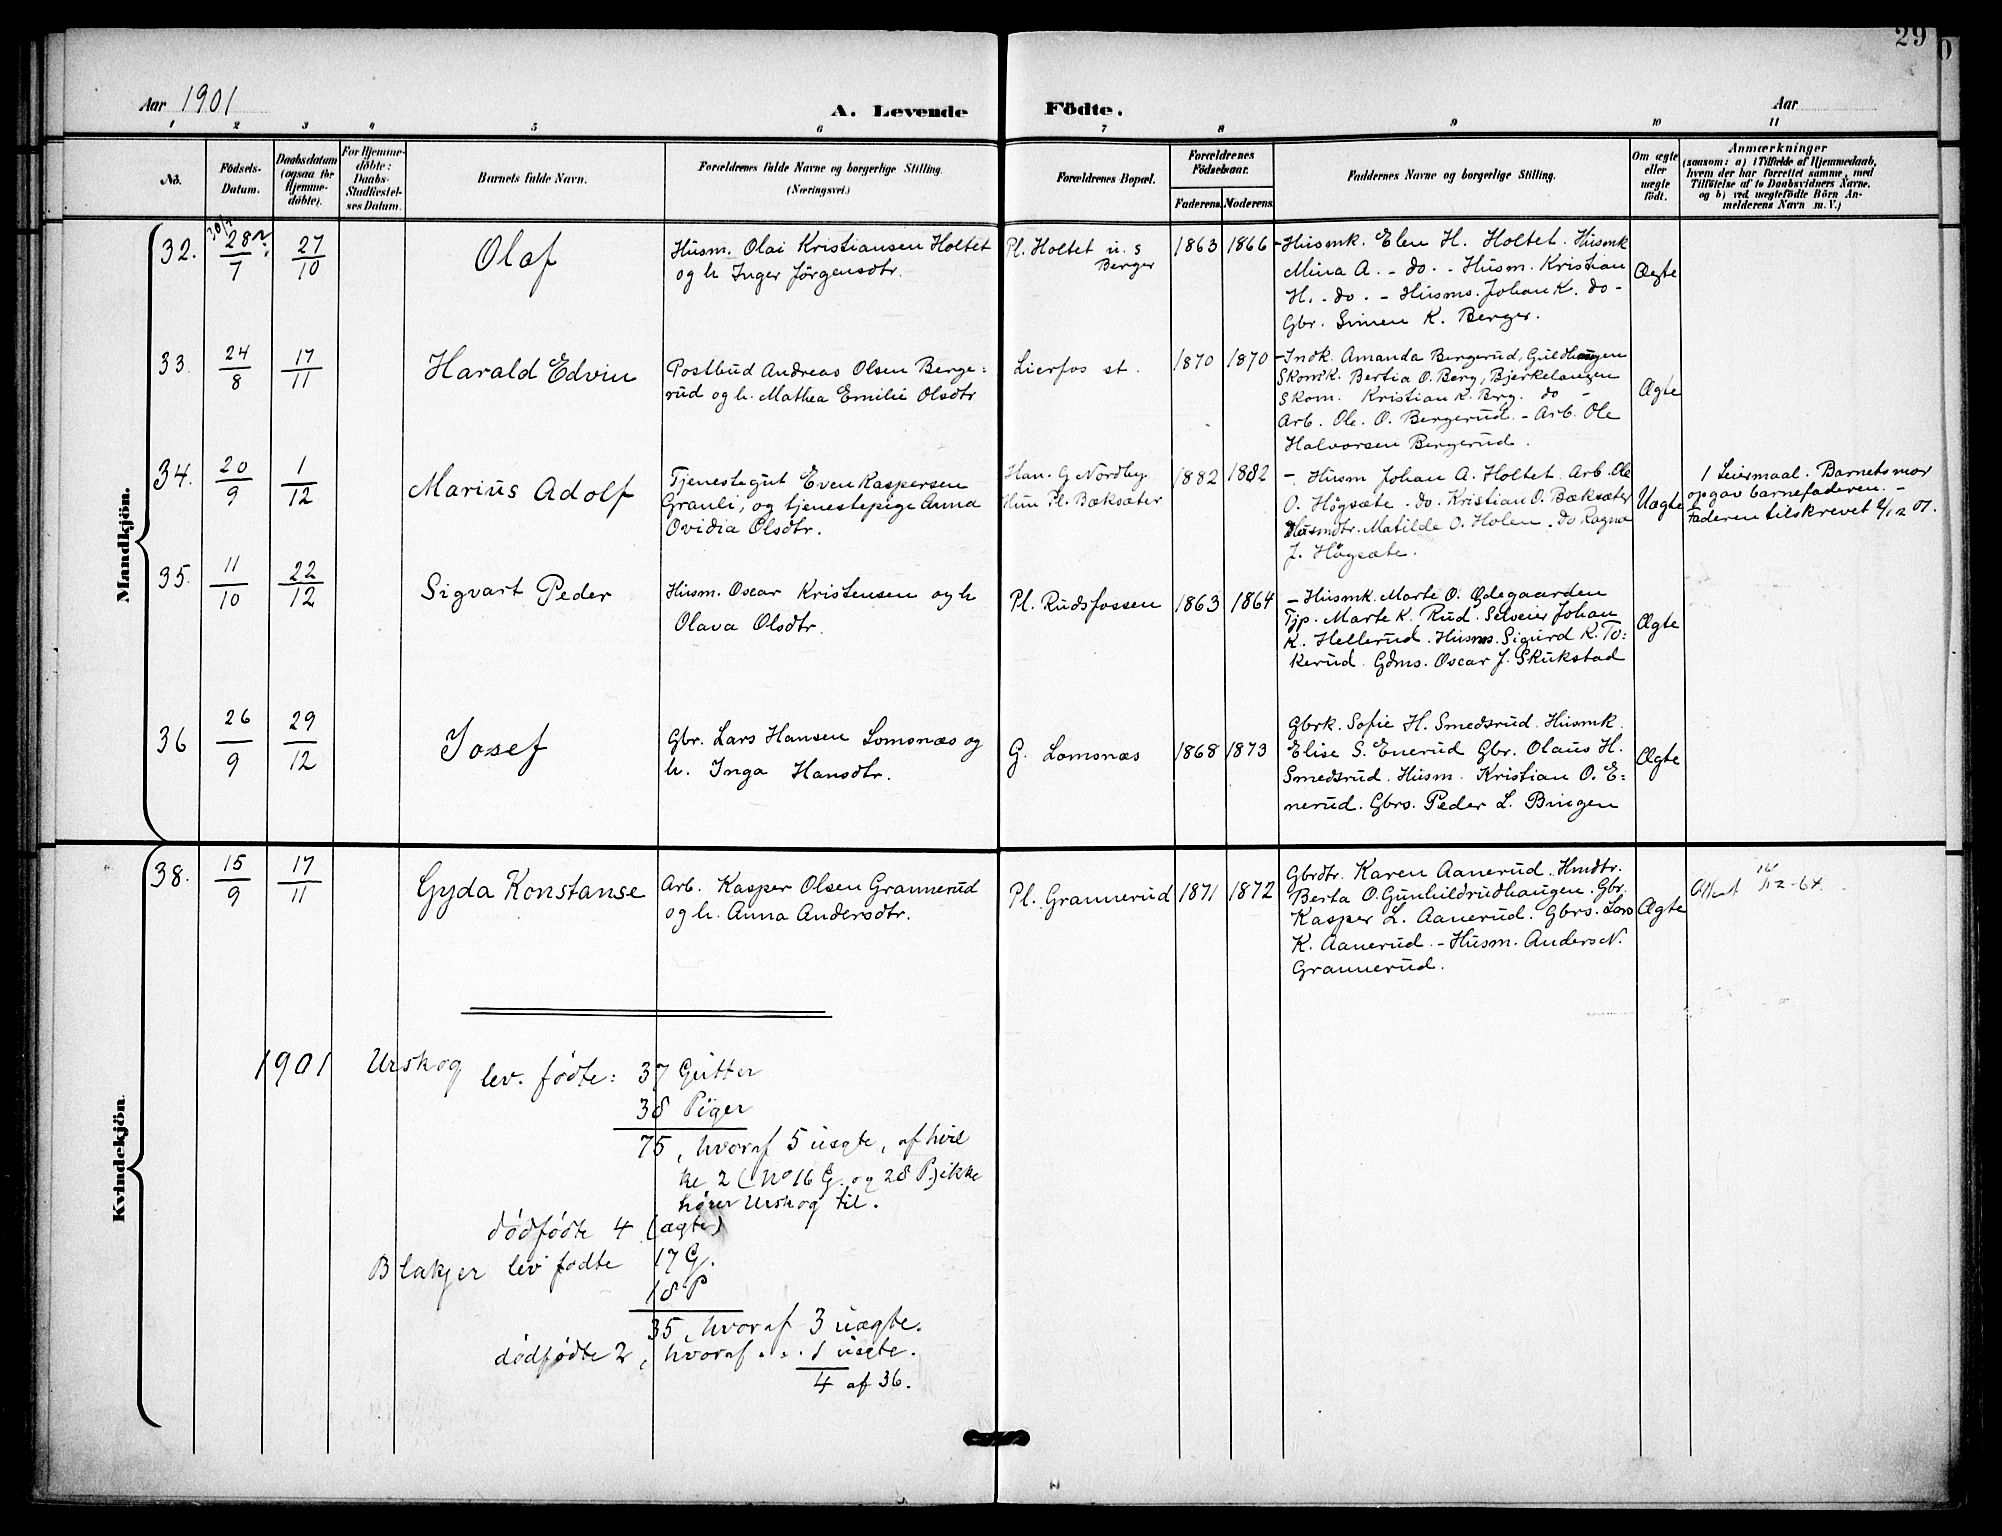 29
Aar 1901
A. Levende Födte.
Aar
1 2 3 4 5 6 7 8 9 10 11
No.
Födsels-
Datum.
Daabsdatum
(ogsaa for
Hjemme-
döbte).
For Hjemme-
döbte:
Daabs-
Stadfæstel-
ses Datum.
Barnets fulde Navn.
Forældrenes fulde Navne og borgerlige Stilling.
(Næringsvei.)
Forældrenes Bopæl.
Forældrenes
Födselsaar.
Faderens. Moderens.
Faddernes Navne og borgerlige Stilling.
Om ægte
eller
uægte
födt.
Anmærkninger
(saasom: a) i Tilfælde af Hjemmedaab,
hvem der har forrettet samme, med
Tilföielse af to Daabsvidners Navne,
og b) ved uægtefödte Börn An-
melderens Navn m. V.)
Mandkjön.
32.
30/7
28/7 ?
27/10
Olaf
Husm. Olai Kristiansen Holtet
og h Inger Jørgensdtr.
Pl. Holtet u. s
Berger
1863 1866
- Husmk. Elen H. Holtet. Husmk
Mina A. - do. - Husm. Kristian
H. - do. - Husms. Johan K. do -
Gbr. Simen K. Berger.
Ægte
33.
24/8
17/11
Harald Edvin
Postbud Andreas Olsen Berge:
rud og h. Mathea Emilie Olsdtr
Lierfos st.
1870 1870
- Indk. Amanda Bergerud, Guldhaugen
Skomk. Bertia O. Berg, Bjerkelangen
Skom. Kristian K. Berg. do -
Arb. Ole. O. Bergerud. - Arb. Ole
Halvorsen Bergerud.
Ægte
34.
20/9
1/12
Marius Adolf
Tjenestegut Even Kaspersen
Granli, og tjenestepige Anna
Ovidia Olsdtr.
Han. G Nordby
Hun Pl. Bæksæter
1882 1882
- Husm Johan A. Holtet. Arb. Ole
O. Høgsæte. do. Kristian O. Bæksæter
Husmdtr. Matilde O. Holen. do Ragna
J. Høgsæte.
Uægte
1 Leiermaal. Barnets mor
opgav barnefaderen. -
Faderen tilskrevet 2/12 01.
35.
11/10
22/12
Sigvart Peder
Husm. Oscar Kristensen og h
Olava Olsdtr.
Pl. Rudsfossen
1863 1864
- Husmk. Marte O. Ødegaarden
Tjp. Marte K. Rud. Selveier Johan
K. Hellerud. Husms. Sigurd K. To:
kerud. Gdms. Oscar J. Skukstad
Ægte
36
26/9
29/12
Josef
Gbr. Lars Hansen Lomsnæs og
h. Inga Hansdtr.
G. Lomsnæs
1868 1873
Gbrk. Sofie H. Smedsrud. Husmk.
Elise S. Enerud Gbr. Olaus H.
Smedsrud. Husm. Kristian O. E:
nerud. Gbrs. Peder L. Bingen
Ægte
Kvindekjön.
38.
15/9
17/11
Gyda Konstanse
Arb. Kasper Olsen Grannerud
og h. Anna Andersdtr.
Pl. Grannerud
1871 1872
Gbrdtr. Karen Aanerud. Hmdtr.
Berta O. Gunhildrudhaugen. Gbr.
Kasper L. Aanerud. Gbrs. Lars
K. Aanerud. - Husm. Anders N.
Grannerud.
Ægte
Attest
1901 Urskog lev. fødte: 37 Gutter
38 Piger
75, hvoraf 5 uægte, af hvil
ke 2 (No 16 G. og 28 P.) ikke
hører Urskog til.
dødfødte 4 (ægte)
Blakjer lev fødte 17 G.
18 P
35, hvoraf 3 uægte.
dødfødte 2, hvoraf . . . 1 uægte.
4 af 36.